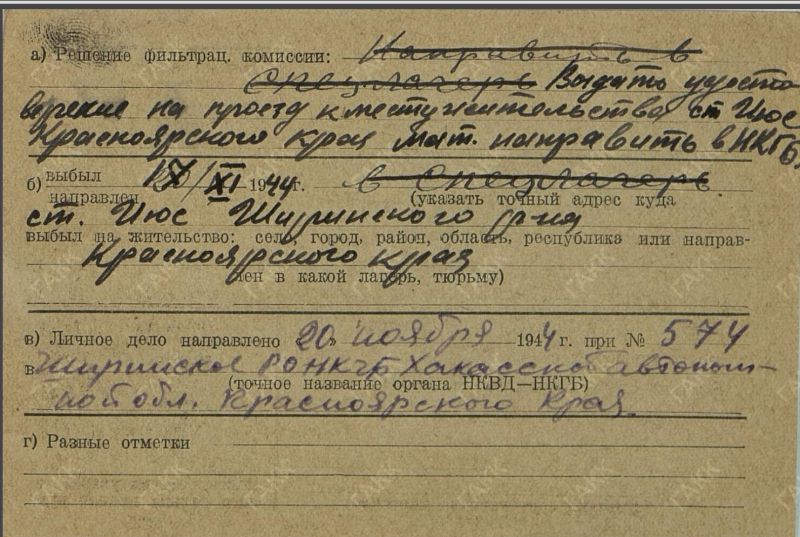 а) Решение фильтрац. комиссии: Направить в
спецлагерь Выдать удосто
верение на проезд к местужительства ст Июс
Красноярского края Мат. направить в НКГБ,
б) выбыл /XI 1944 г. в спецлагерь
направлен (указать точный адрес куда
ст. Июс Ширинского р-на
выбыл на жительство: село, город, район, область, республика или направ-
Красноярского края
лен в какой лагерь, тюрьму)
в) Личное дело направлено 20 ноября 1944 г. при № 574
в Ширинское РО НКГБ Хакасской автоном-
(точное название органа НКВД—НКГБ)
ной обл. Красноярского Края
г) Разные отметки
ГАКК